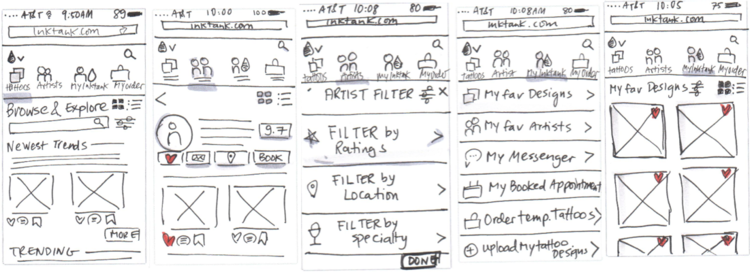 .... AT&T 9:50AM 89
inktank.com
tattoos Artists MyInktank Myorder
Browse & Explore
Newest Trends
MORE
TRENDING
.... AT&T 10:00 100
inktank.com
9.7
BOOK
.... AT&T 10:08 80
inktank.com
tattoos Artists My Inktank Myorder
ARTIST FILTER X
FILTER by
Ratings >
FILTER by
Location >
FILTER by
specialty >
DONE
.... AT&T 10:08AM 80
inktank.com
tattoos Artist MyInktank My order
My fav Designs >
My fav Artists >
My Messenger >
My Booked Appointment
Order temp. tattoos >
upload My tattoo
Designs >
.... AT&T 10:05 75
inktank.com
tattoos Artists MyInktank Myorder
My fav Designs